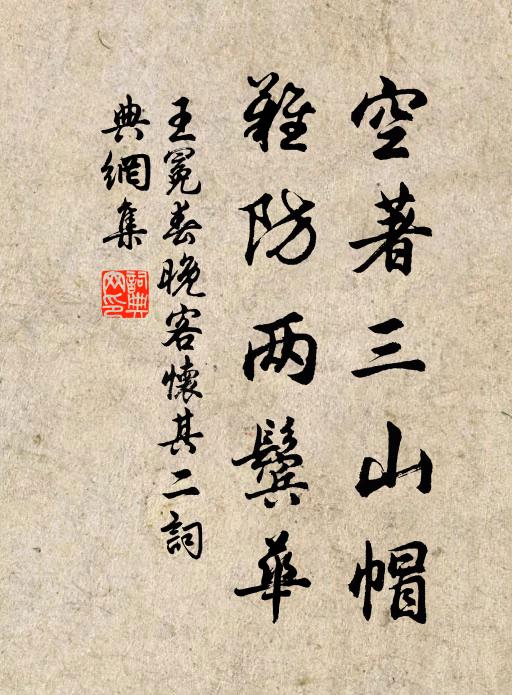 空著三山帽
難防两鬢華
王冕春晚客懷其二詞
典網集
詞典
网印